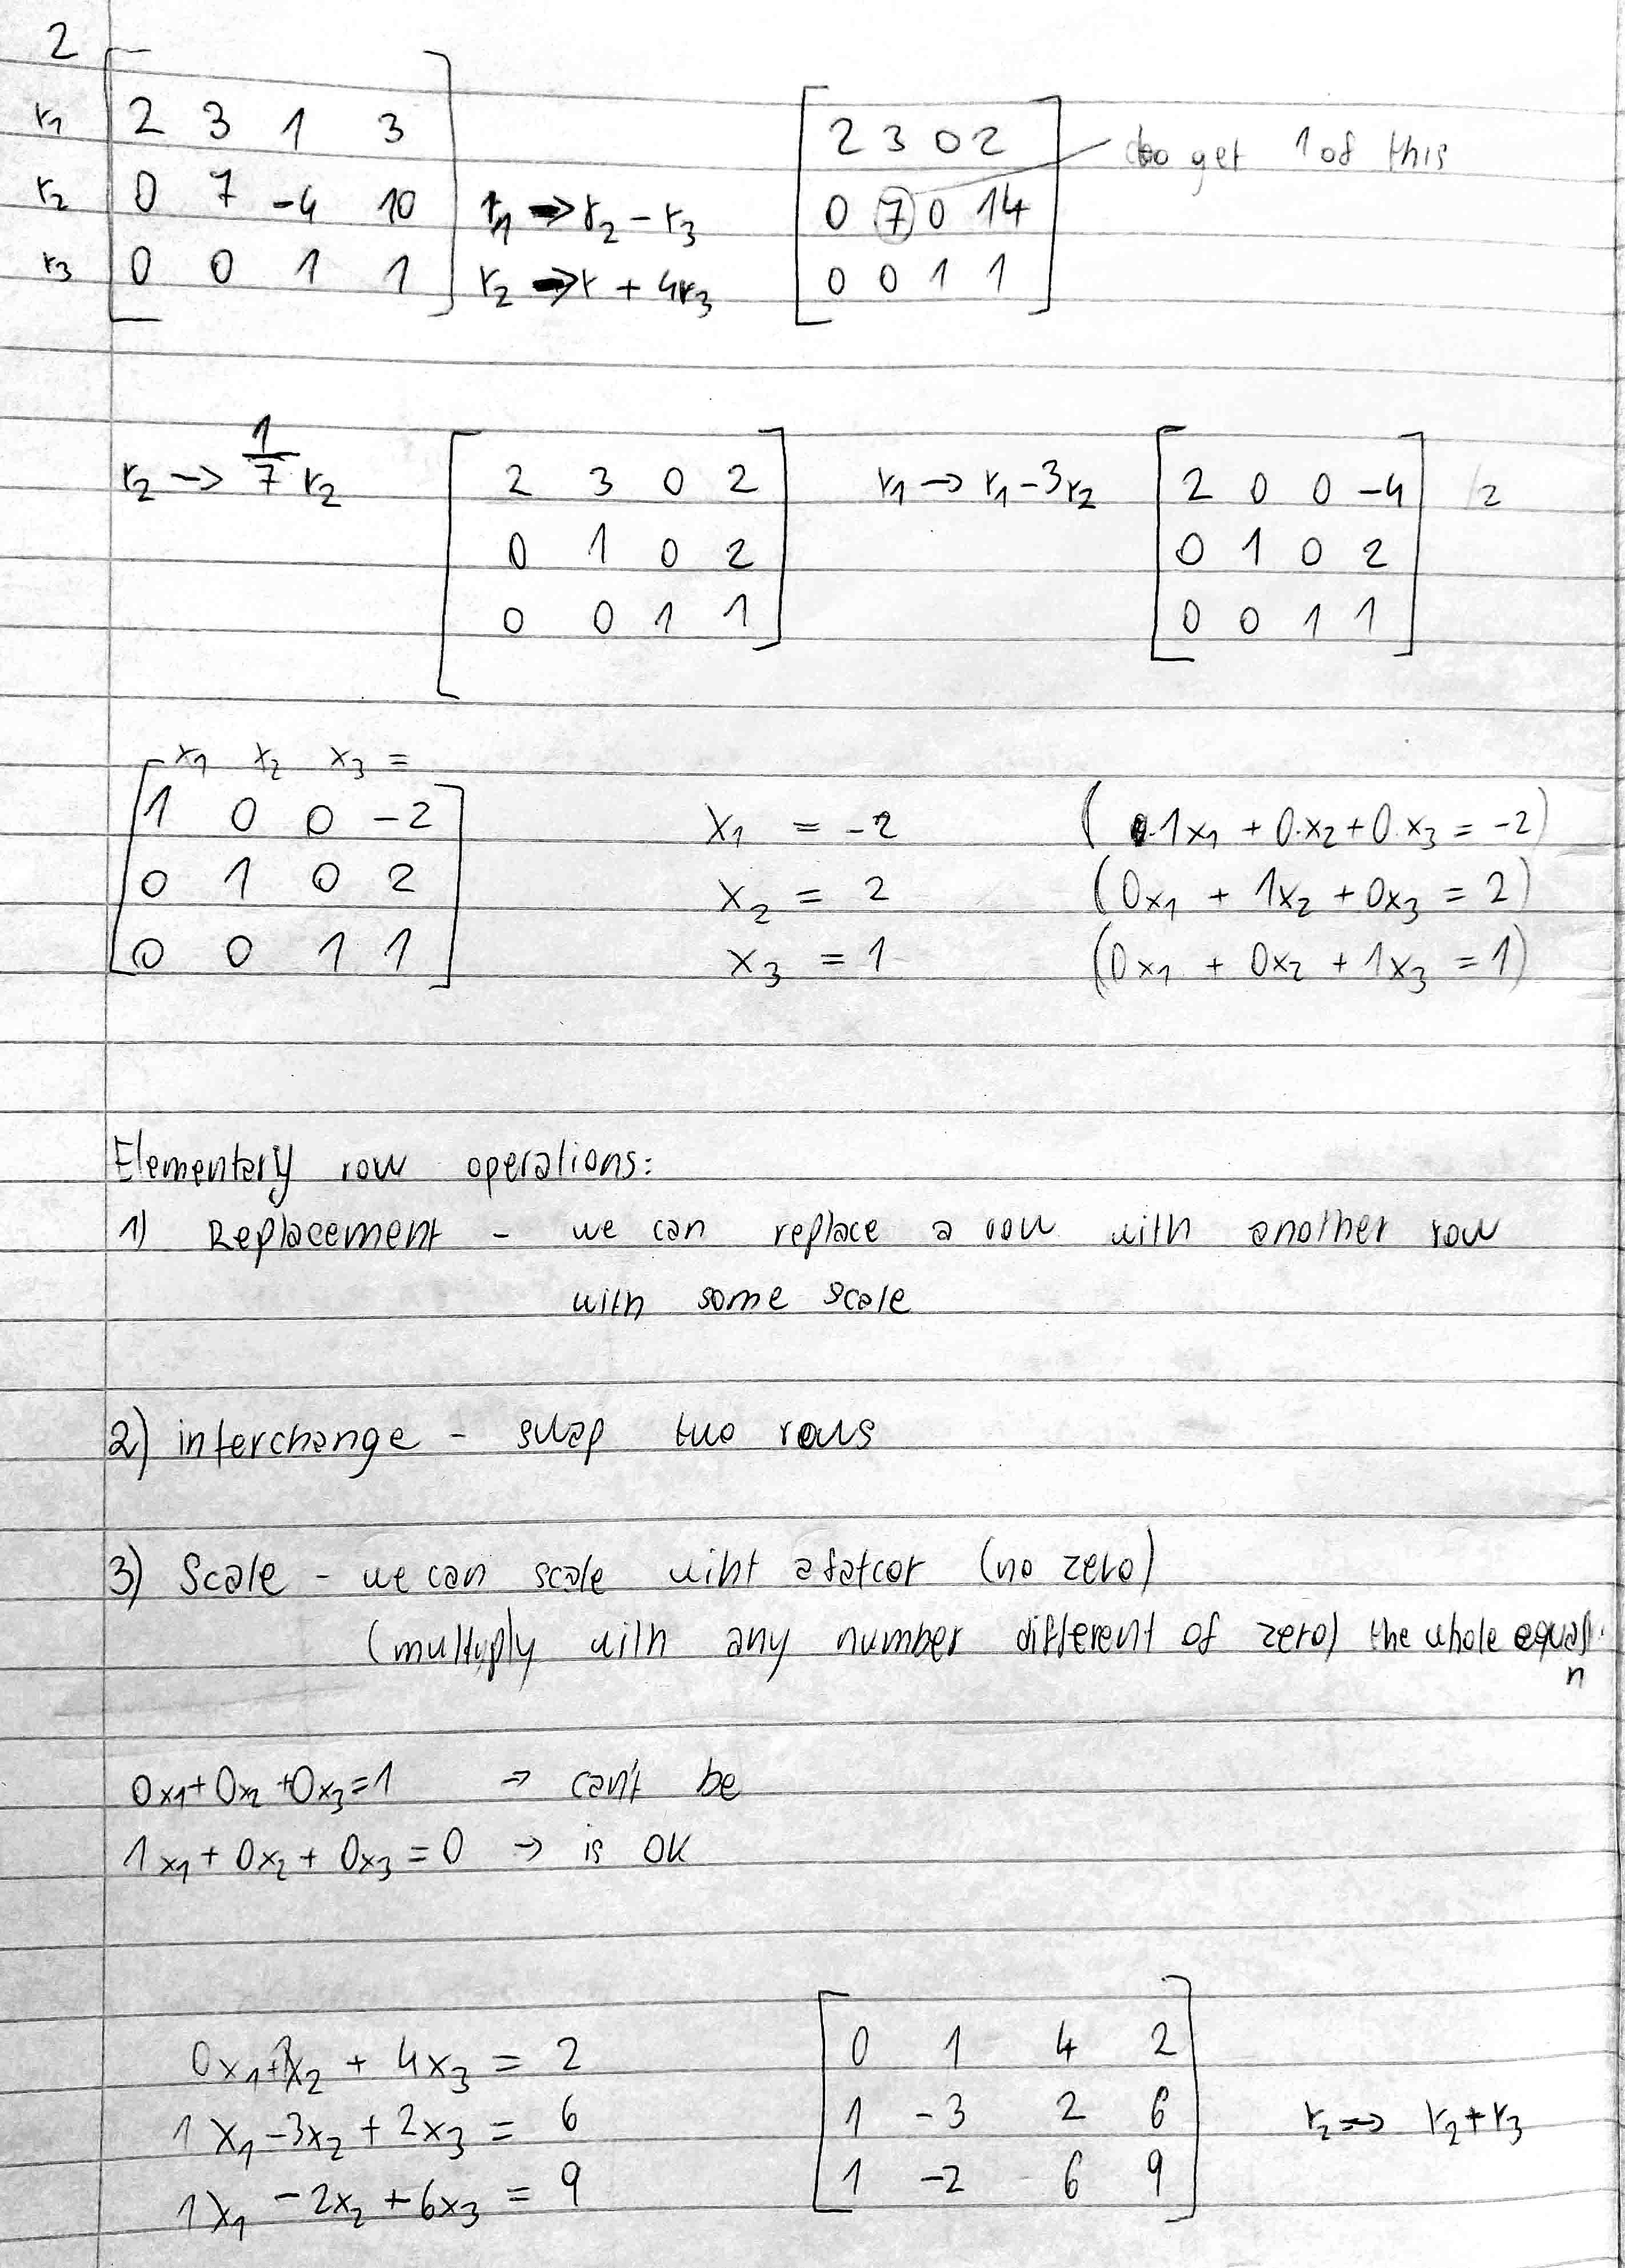 2
r1 2 3 1 3
r2 0 7 -4 10 r1 → r2 - r3
r3 0 0 1 1 r2 → r + 4r3
2 3 0 2 to get 1 of this
0 7 0 14
0 0 1 1
r2 → 1/7 r2
2 3 0 2
0 1 0 2
0 0 1 1
r1 → r1 - 3r2
2 0 0 -4 /2
0 1 0 2
0 0 1 1
x1 x2 x3 =
1 0 0 -2
0 1 0 2
0 0 1 1
x1 = -2 (1x1 + 0·x2 + 0·x3 = -2)
x2 = 2 (0x1 + 1x2 + 0x3 = 2)
x3 = 1 (0x1 + 0x2 + 1x3 = 1)
Elementary row operations:
1) Replacement - we can replace a row with another row
with some scale
2) interchange - swap two rows
3) Scale - we can scale wiht a fatcor (no zero)
(multiply with any number different of zero) the whole equat.
n
0x1 + 0x2 + 0x3 = 1 → can't be
1x1 + 0x2 + 0x3 = 0 → is OK
0x1 + 1x2 + 4x3 = 2
1x1 - 3x2 + 2x3 = 6
1x1 - 2x2 + 6x3 = 9
0 1 4 2
1 -3 2 6 r2 → r2 + r3
1 -2 6 9